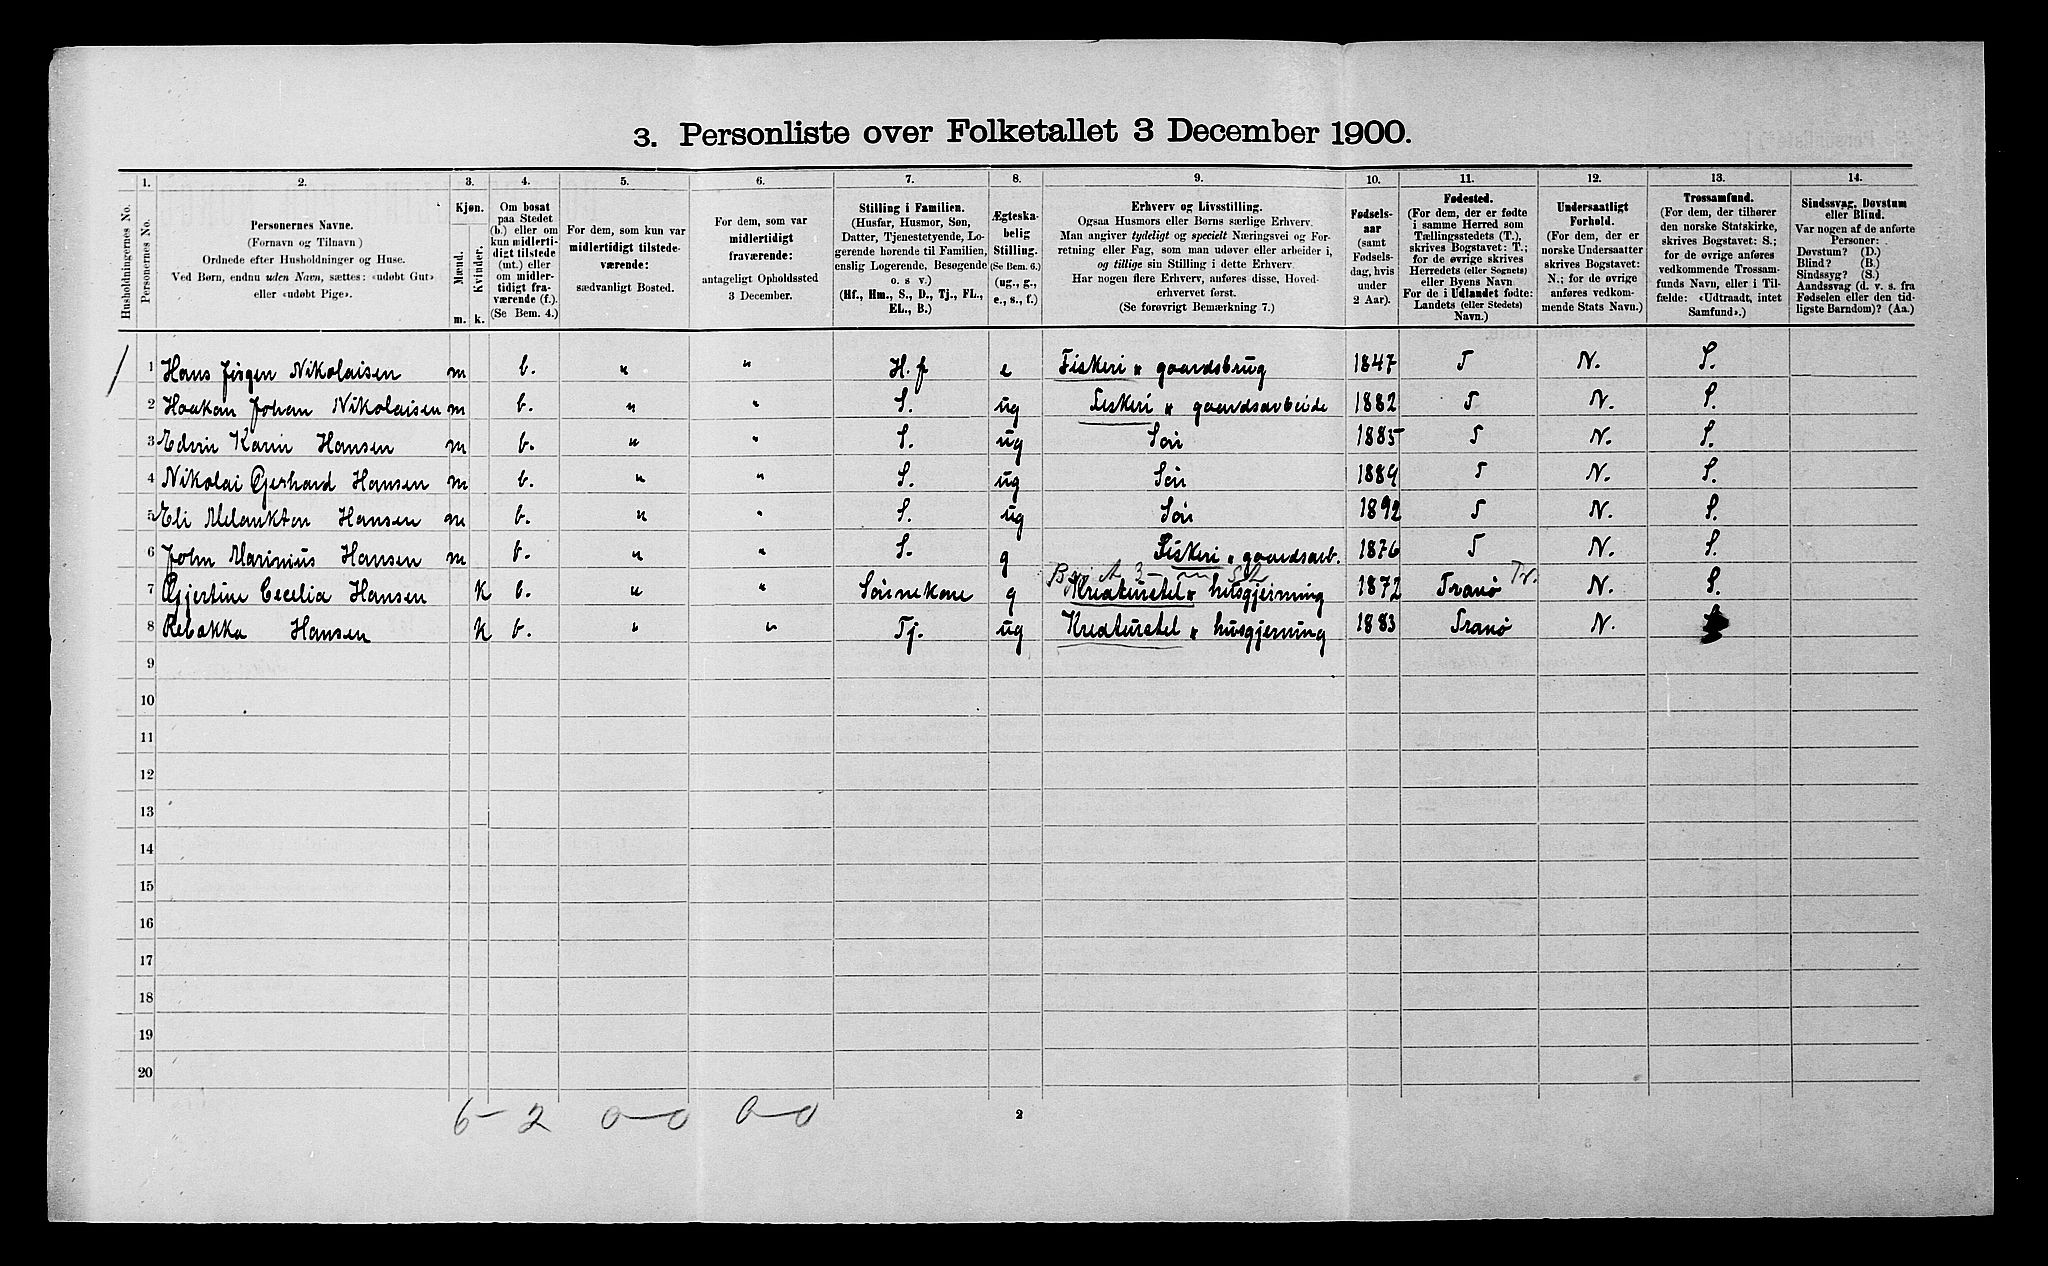 3. Personliste over Folketallet 3 December 1900.
1. 2. 3. 4. 5. 6. 7. 8. 9. 10. 11. 12. 13. 14.
Husholdningernes No.
Personernes No.
Personernes Navne.
(Fornavn og Tilnavn)
Ordnede efter Husholdninger og Huse.
Ved Børn, endnu uden Navn, sættes: «udøbt Gut»
eller «udøbt Pige».
Kjøn.
Mænd.
Kvinder.
m. k.
Om bosat
paa Stedet
(b.) eller om
kun midlerti-
digt tilstede
(mt.) eller
om midler-
tidigt fra-
værende (f.).
(Se Bem. 4.)
For dem, som kun var
midlertidigt tilstede-
værende:
sædvanligt Bosted.
For dem, som var
midlertidigt
fraværende:
antageligt Opholdssted
3 December.
Stilling i Familien.
(Husfar, Husmor, Søn,
Datter, Tjenestetyende, Lo-
gerende hørende til Familien,
enslig Logerende, Besøgende
o. s v.)
(Hf., Hm., S., D., Tj., FL.,
EL., B.)
Ægteska-
belig
Stilling.
(Se Bem. 6.)
(ug., g.,
e., s., f.)
Erhverv og Livsstilling.
Ogsaa Husmors eller Børns særlige Erhverv.
Man angiver tydeligt og specielt Næringsvei og For-
retning eller Fag, som man udøver eller arbeider i,
og tillige sin Stilling i dette Erhverv.
Har nogen flere Erhverv, anføres disse, Hoved-
erhvervet først.
(Se forøvrigt Bemærkning 7.)
Fødsels-
aar
(samt
Fødsels-
dag, hvis
under
2 Aar).
Fødested.
(For dem, der er fødte
i samme Herred som
Tællingsstedets (T.),
skrives Bogstavet: T.;
for de øvrige skrives
Herredets (eller Sognets)
eller Byens Navn
For de i Udlandet fødte:
Landets (eller Stedets)
Navn.)
Undersaatligt
Forhold.
(For dem, der er
norske Undersaatter
skrives Bogstavet:
N.; for de øvrige
anføres vedkom-
mende Stats Navn.)
Trossamfund.
(For dem, der tilhører
den norske Statskirke,
skrives Bogstavet: S.;
for de øvrige anføres
vedkommende Trossam-
funds Navn, eller i Til-
fælde: «Udtraadt, intet
Samfund».)
Sindssvag, Døvstum
eller Blind.
Var nogen af de anførte
Personer:
Døvstum? (D.)
Blind? (B.)
Sindssyg? (S.)
Aandssvag (d. v. s. fra
Fødselen eller den tid-
ligste Barndom)? (Aa.)
1 Hans Jørgen Nikolaisen m b. " " H.f e Fiskeri " gaardsbrug 1847 T N. S.
2 Haakan Johan Nikolaisen m b. " " S. ug Fiskeri " gaardsarbeide 1882 T N. S.
3 Edvin Karin Hansen m b. " " S. ug Søn 1885 T N. S.
4 Nikolai Gerhard Hansen m b. " " S. ug Søn 1889 T N. S.
5 Eli Melankton Hansen m b. " " S. ug Søn 1892 T N. S.
6 John Marinius Hansen m b. " " S. g Fiskeri " gaardsarb. 1876 T N. S.
7 Gjertine Cecelia Hansen K b. " " Sønnekone g Kreaturstel " husgjerning 1872 Tranø Tr. N. S.
8 Rebakka Hansen K b. " " Tj. ug Kreaturstel " husgjerning 1883 Tranø N.
9
10
11
12
13
14
15
16
17
18
19
20
6 - 2 0-0 0-0 2